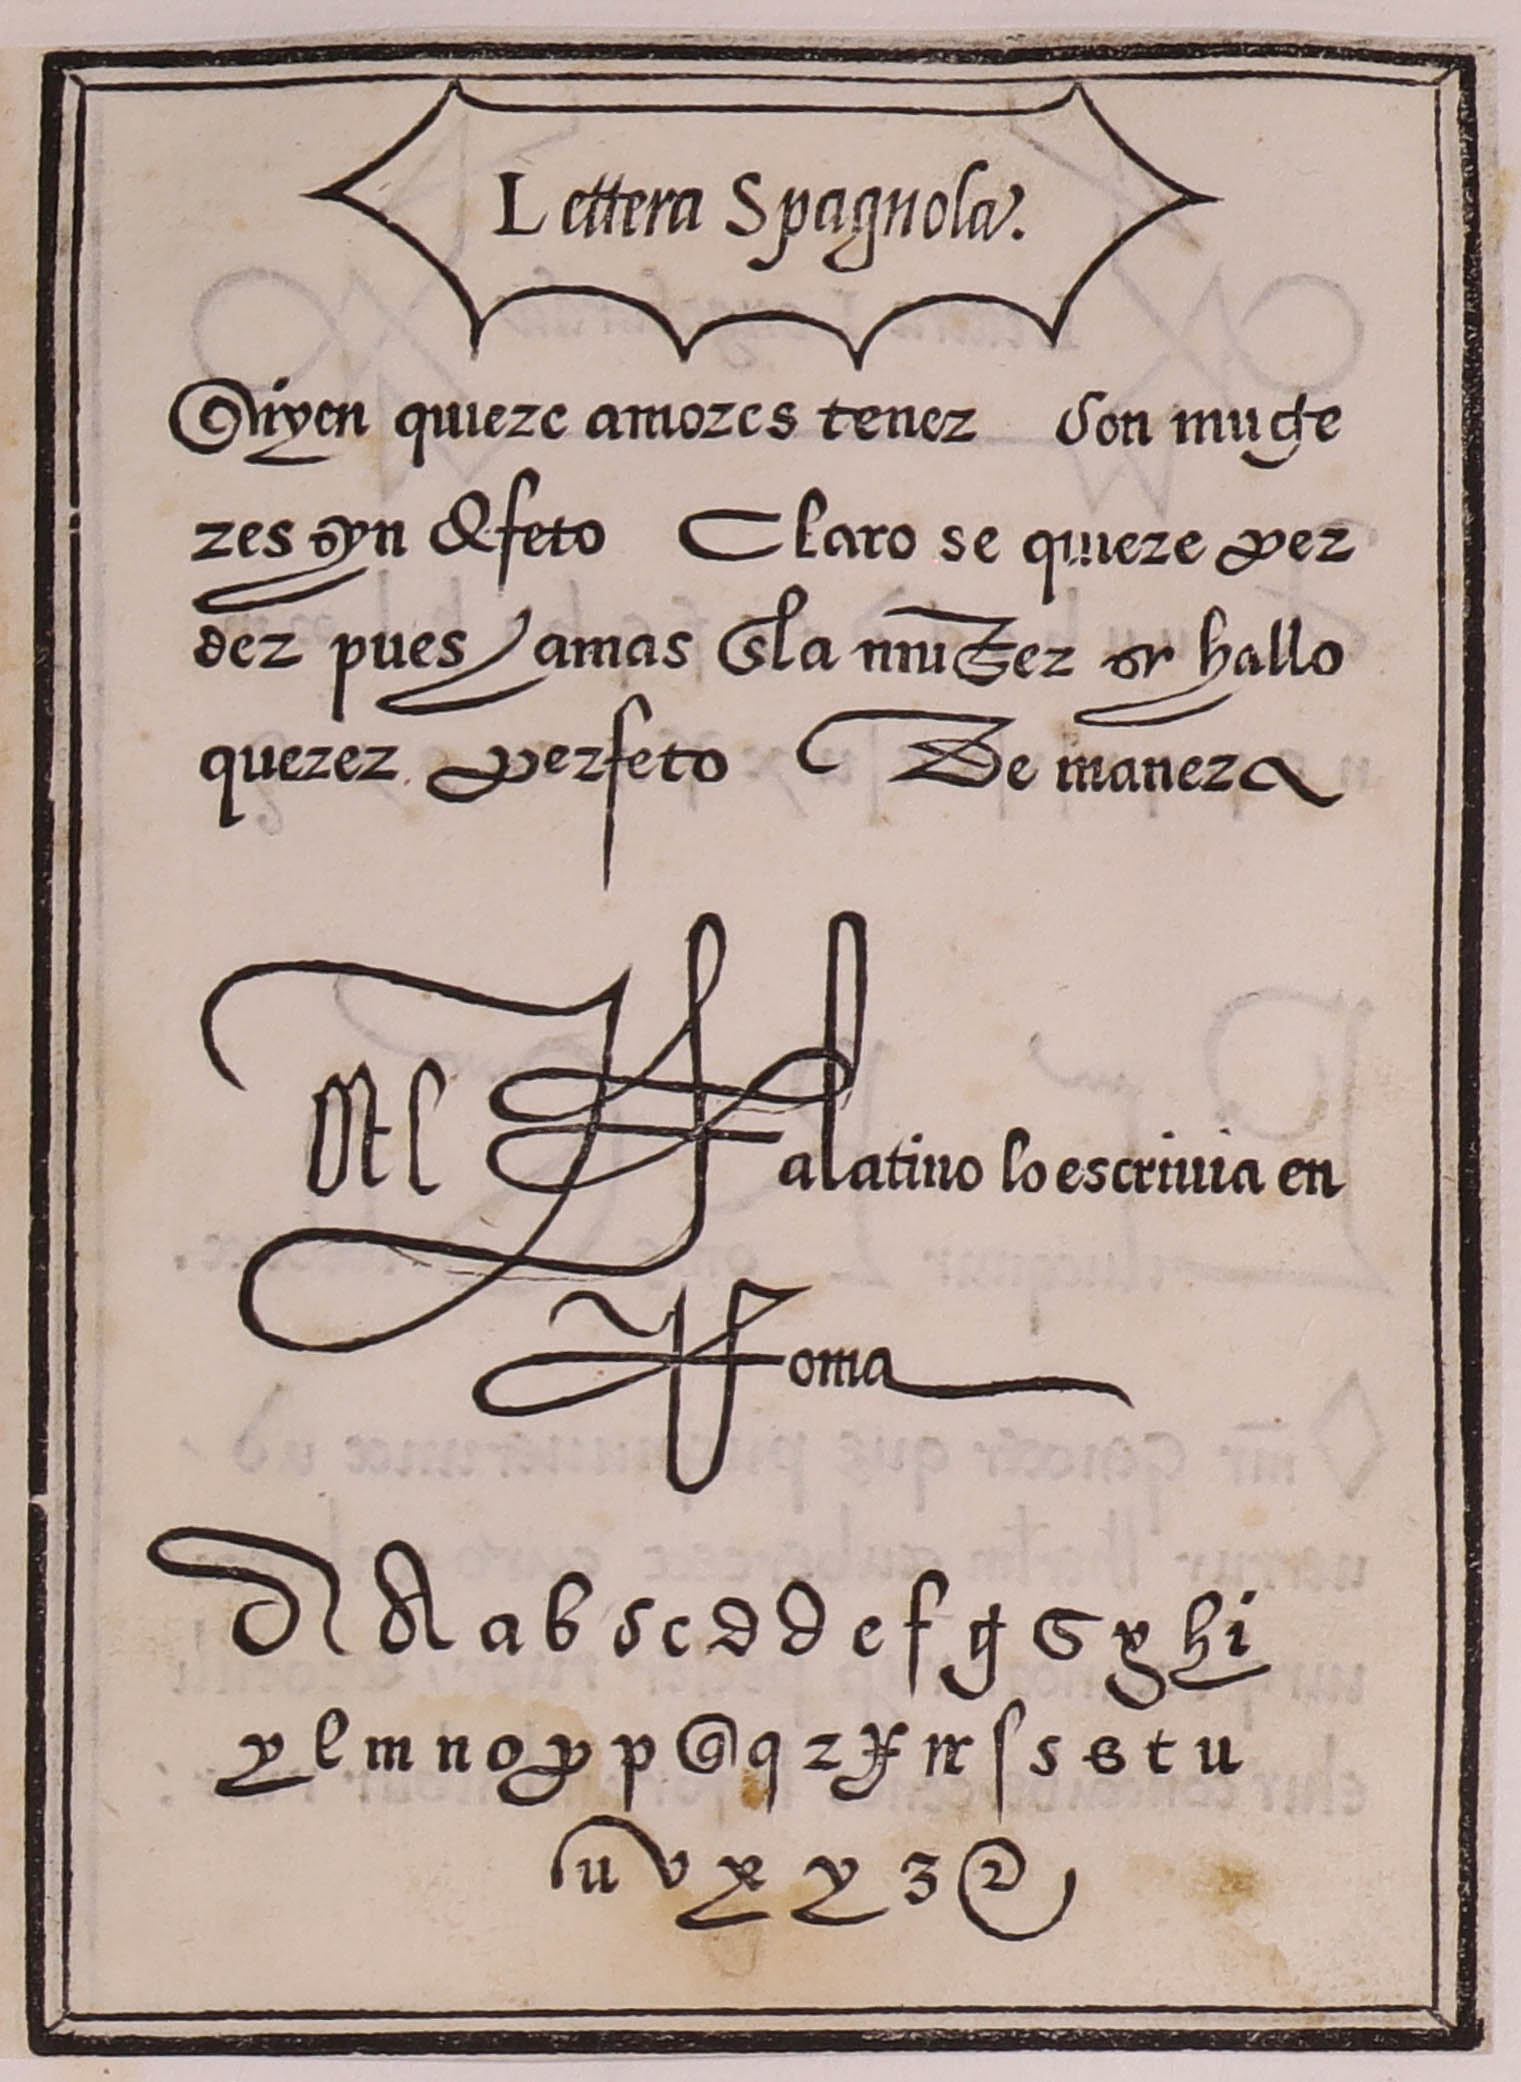 Lettera Spagnola.
Quyen quiere amores tener con muge
res syn defeto Claro se quiere per
der pues jamas de la muger se hallo
querer perfeto De manera
Palatino lo escriuia en
Roma
A A a b c c d d e f g G g h i
y l m n o p p Q q r r rr ſ s s t u
u v x y z